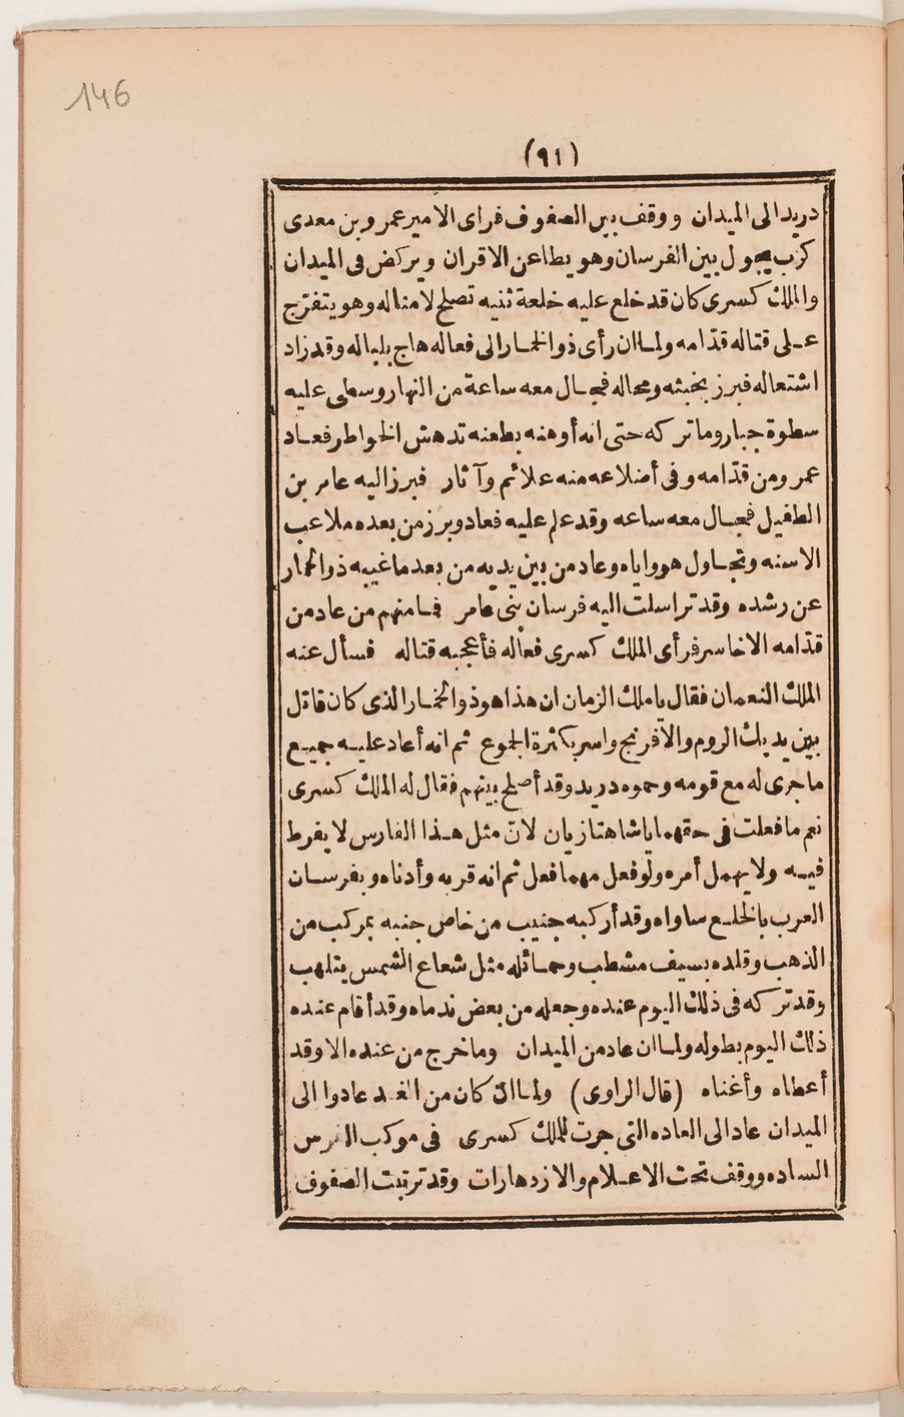 146
(٩١)
دريد الى الميدان ووقف بين الصفوف فراى الامير عمرو بن معدى
كرب يجول بين الفرسان وهو يطاعن الاقران ويركض فى الميدان
والملك كسرى كان قد خلع عليه خلعة ثنيه تصلح لامثاله وهو يتفرّج
على قتاله قدّامه ولما ان رأى ذو الخمار الى فعاله هاج بلباله وقد زاد
اشتعاله فبرز بخبثه ومحاله فجال معه ساعة من النهار وسطى عليه
سطوة جبار وما تركه حتى انه أوهنه بطعنه تدهش الخواطر فعاد
عمرو من قدّامه وفى أضلاعه منه علائم وآثار فبرز اليه عامر بن
الطفيل فجال معه ساعه وقد علم عليه فعاد وبرز من بعده ملاعب
الاسنه وتجاول هو واياه وعاد من بين يديه من بعد ما غيبه ذو الخمار
عن رشده وقد تراسلت اليه فرسان بنى عامر فما منهم من عاد من
قدّامه الا خاسر فرأى الملك كسرى فعاله فأعجبه قتاله فسأل عنه
الملك النعمان فقال يا ملك الزمان ان هذا هو ذو الخمار الذى كان قاتل
بين يديك الروم والافرنج واسر بكثرة الجموع ثم انه أعاد عليه جميع
ما جرى له مع قومه وحموه دريد وقد أصلح بينهم فقال له الملك كسرى
نعم ما فعلت فى حقهما يا شاهتازيان لانّ مثل هذا الفارس لا يفرط
فيه ولا يهمل أمره ولو فعل مهما فعل ثم انه قربه وأدناه وبفرسان
العرب بالخلع ساواه وقد أركبه جنيب من خاص جنبه بمركب من
الذهب وقلده بسيف مشطب وحمائله مثل شعاع الشمس يتلهب
وقد تركه فى ذلك اليوم عنده وجعله من بعض ندماه وقد أقام عنده
ذلك اليوم بطوله ولما ان عاد من الميدان وما خرج من عنده الا وقد
أعطاه وأغناه (قال الراوى) ولما ان كان من الغد عادوا الى
الميدان عاد الى العاده التى جرت للملك كسرى فى موكب الفرس
الساده ووقف تحت الاعلام والازدهارات وقد ترتبت الصفوف